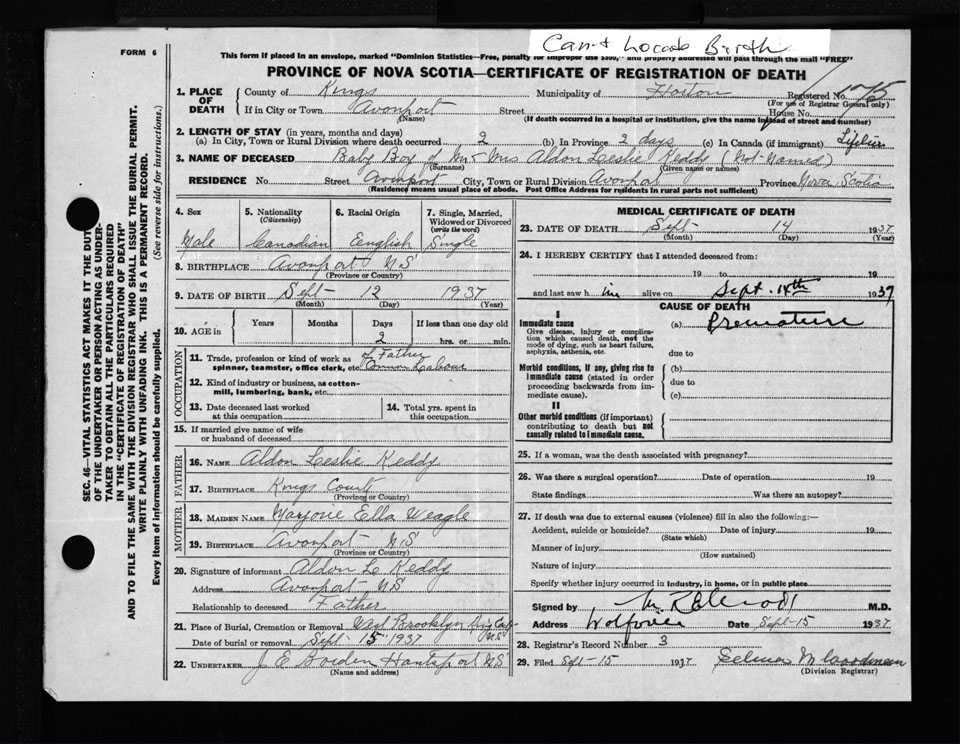 FORM 6
Can't Locate Birth
This form if placed in an envelope, marked "Dominion Statistics—Free, penalty for improper use $300," and properly addressed will pass through the mail "FREE"
PROVINCE OF NOVA SCOTIA—CERTIFICATE OF REGISTRATION OF DEATH
1. PLACE OF DEATH
County of Kings Municipality of Horton Registered No.
(For use of Registrar General only)
If in City or Town Avonport Street House No.
(Name) (If death occurred in a hospital or institution, give the name instead of street and number)
2. LENGTH OF STAY (in years, months and days)
(a) In City, Town or Rural Division where death occurred 2 (b) In Province 2 days (c) In Canada (if immigrant) Lifetime
3. NAME OF DECEASED Baby Boy of Mr & Mrs Aldon Leslie Reddy (Not-Named)
(Surname) (Given name or names)
RESIDENCE No. Street Avonport City, Town or Rural Division Avonport Province Nova Scotia
(Residence means usual place of abode. Post Office Address for residents in rural parts not sufficient)
4. Sex 5. Nationality (Citizenship) 6. Racial Origin 7. Single, Married, Widowed or Divorced (write the word)
Male Canadian English Single
8. BIRTHPLACE Avonport NS
(Province or Country)
9. DATE OF BIRTH Sept 12 1937
(Month) (Day) (Year)
10. AGE in Years Months Days If less than one day old
2 hrs. or min.
OCCUPATION
11. Trade, profession or kind of work as spinner, teamster, office clerk, etc. of Father Common Labour
12. Kind of industry or business, as cotton-mill, lumbering, bank, etc.
13. Date deceased last worked at this occupation 14. Total yrs. spent in this occupation
15. If married give name of wife or husband of deceased
FATHER
16. NAME Aldon Leslie Reddy
17. BIRTHPLACE Kings County
(Province or Country)
MOTHER
18. MAIDEN NAME Marjorie Ella Weagle
19. BIRTHPLACE Avonport NS
(Province or Country)
20. Signature of informant Aldon Le Reddy
Address Avonport NS
Relationship to deceased Father
21. Place of Burial, Cremation or Removal West Brooklyn NS
Date of burial or removal Sept 15 1937
22. UNDERTAKER J E Borden Hantsport NS
(Name and address)
MEDICAL CERTIFICATE OF DEATH
23. DATE OF DEATH Sept 14 1937
(Month) (Day) (Year)
24. I HEREBY CERTIFY that I attended deceased from:
19 to 19
and last saw h im alive on Sept. 14th 1937
CAUSE OF DEATH
I
Immediate cause (a) Premature
Give disease, injury or complication which caused death, not the mode of dying, such as heart failure, asphyxia, asthenia, etc.
due to
Morbid conditions, if any, giving rise to immediate cause (stated in order proceeding backwards from immediate cause).
(b)
due to
(c)
II
Other morbid conditions (if important) contributing to death but not causally related to immediate cause.
25. If a woman, was the death associated with pregnancy?
26. Was there a surgical operation? Date of operation 19
State findings Was there an autopsy?
27. If death was due to external causes (violence) fill in also the following:—
Accident, suicide or homicide? Date of injury 19
(State which)
Manner of injury
(How sustained)
Nature of injury
Specify whether injury occurred in industry, in home, or in public place
Signed by M.D.
Address Wolfville Date Sept-15 1937
28. Registrar's Record Number 3
29. Filed Sept-15 1937 Selina M Woodman
(Division Registrar)
SEC. 46—VITAL STATISTICS ACT MAKES IT THE DUTY
OF THE UNDERTAKER OR PERSON ACTING AS UNDER-
TAKER TO OBTAIN ALL THE PARTICULARS REQUIRED
IN THE "CERTIFICATE OF REGISTRATION OF DEATH"
AND TO FILE THE SAME WITH THE DIVISION REGISTRAR WHO SHALL ISSUE THE BURIAL PERMIT.
WRITE PLAINLY WITH UNFADING INK. THIS IS A PERMANENT RECORD.
Every item of information should be carefully supplied. (See reverse side for instructions.)